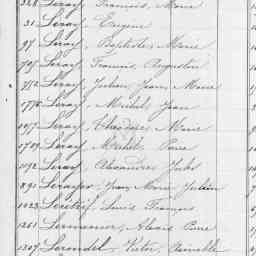 328 Leray, Francois, Marie
31 Leray, Eugene
97 Leray, Baptiste, Marie
795 Leray, Francois, Augustin
752 Leray, Julien, Jean, Marie
1776 Leray, Michel, Jean
1057 Leray, Theodore, Marie
1789 Leray, Michel, Pierre
1092 Leray, Alexandre, Jules
891 Lerayer, Jean, Marie, Julien
1023 Louis, Francois
1261 Alexis, Pierre
1307 Lerondel, Victor, Aimable